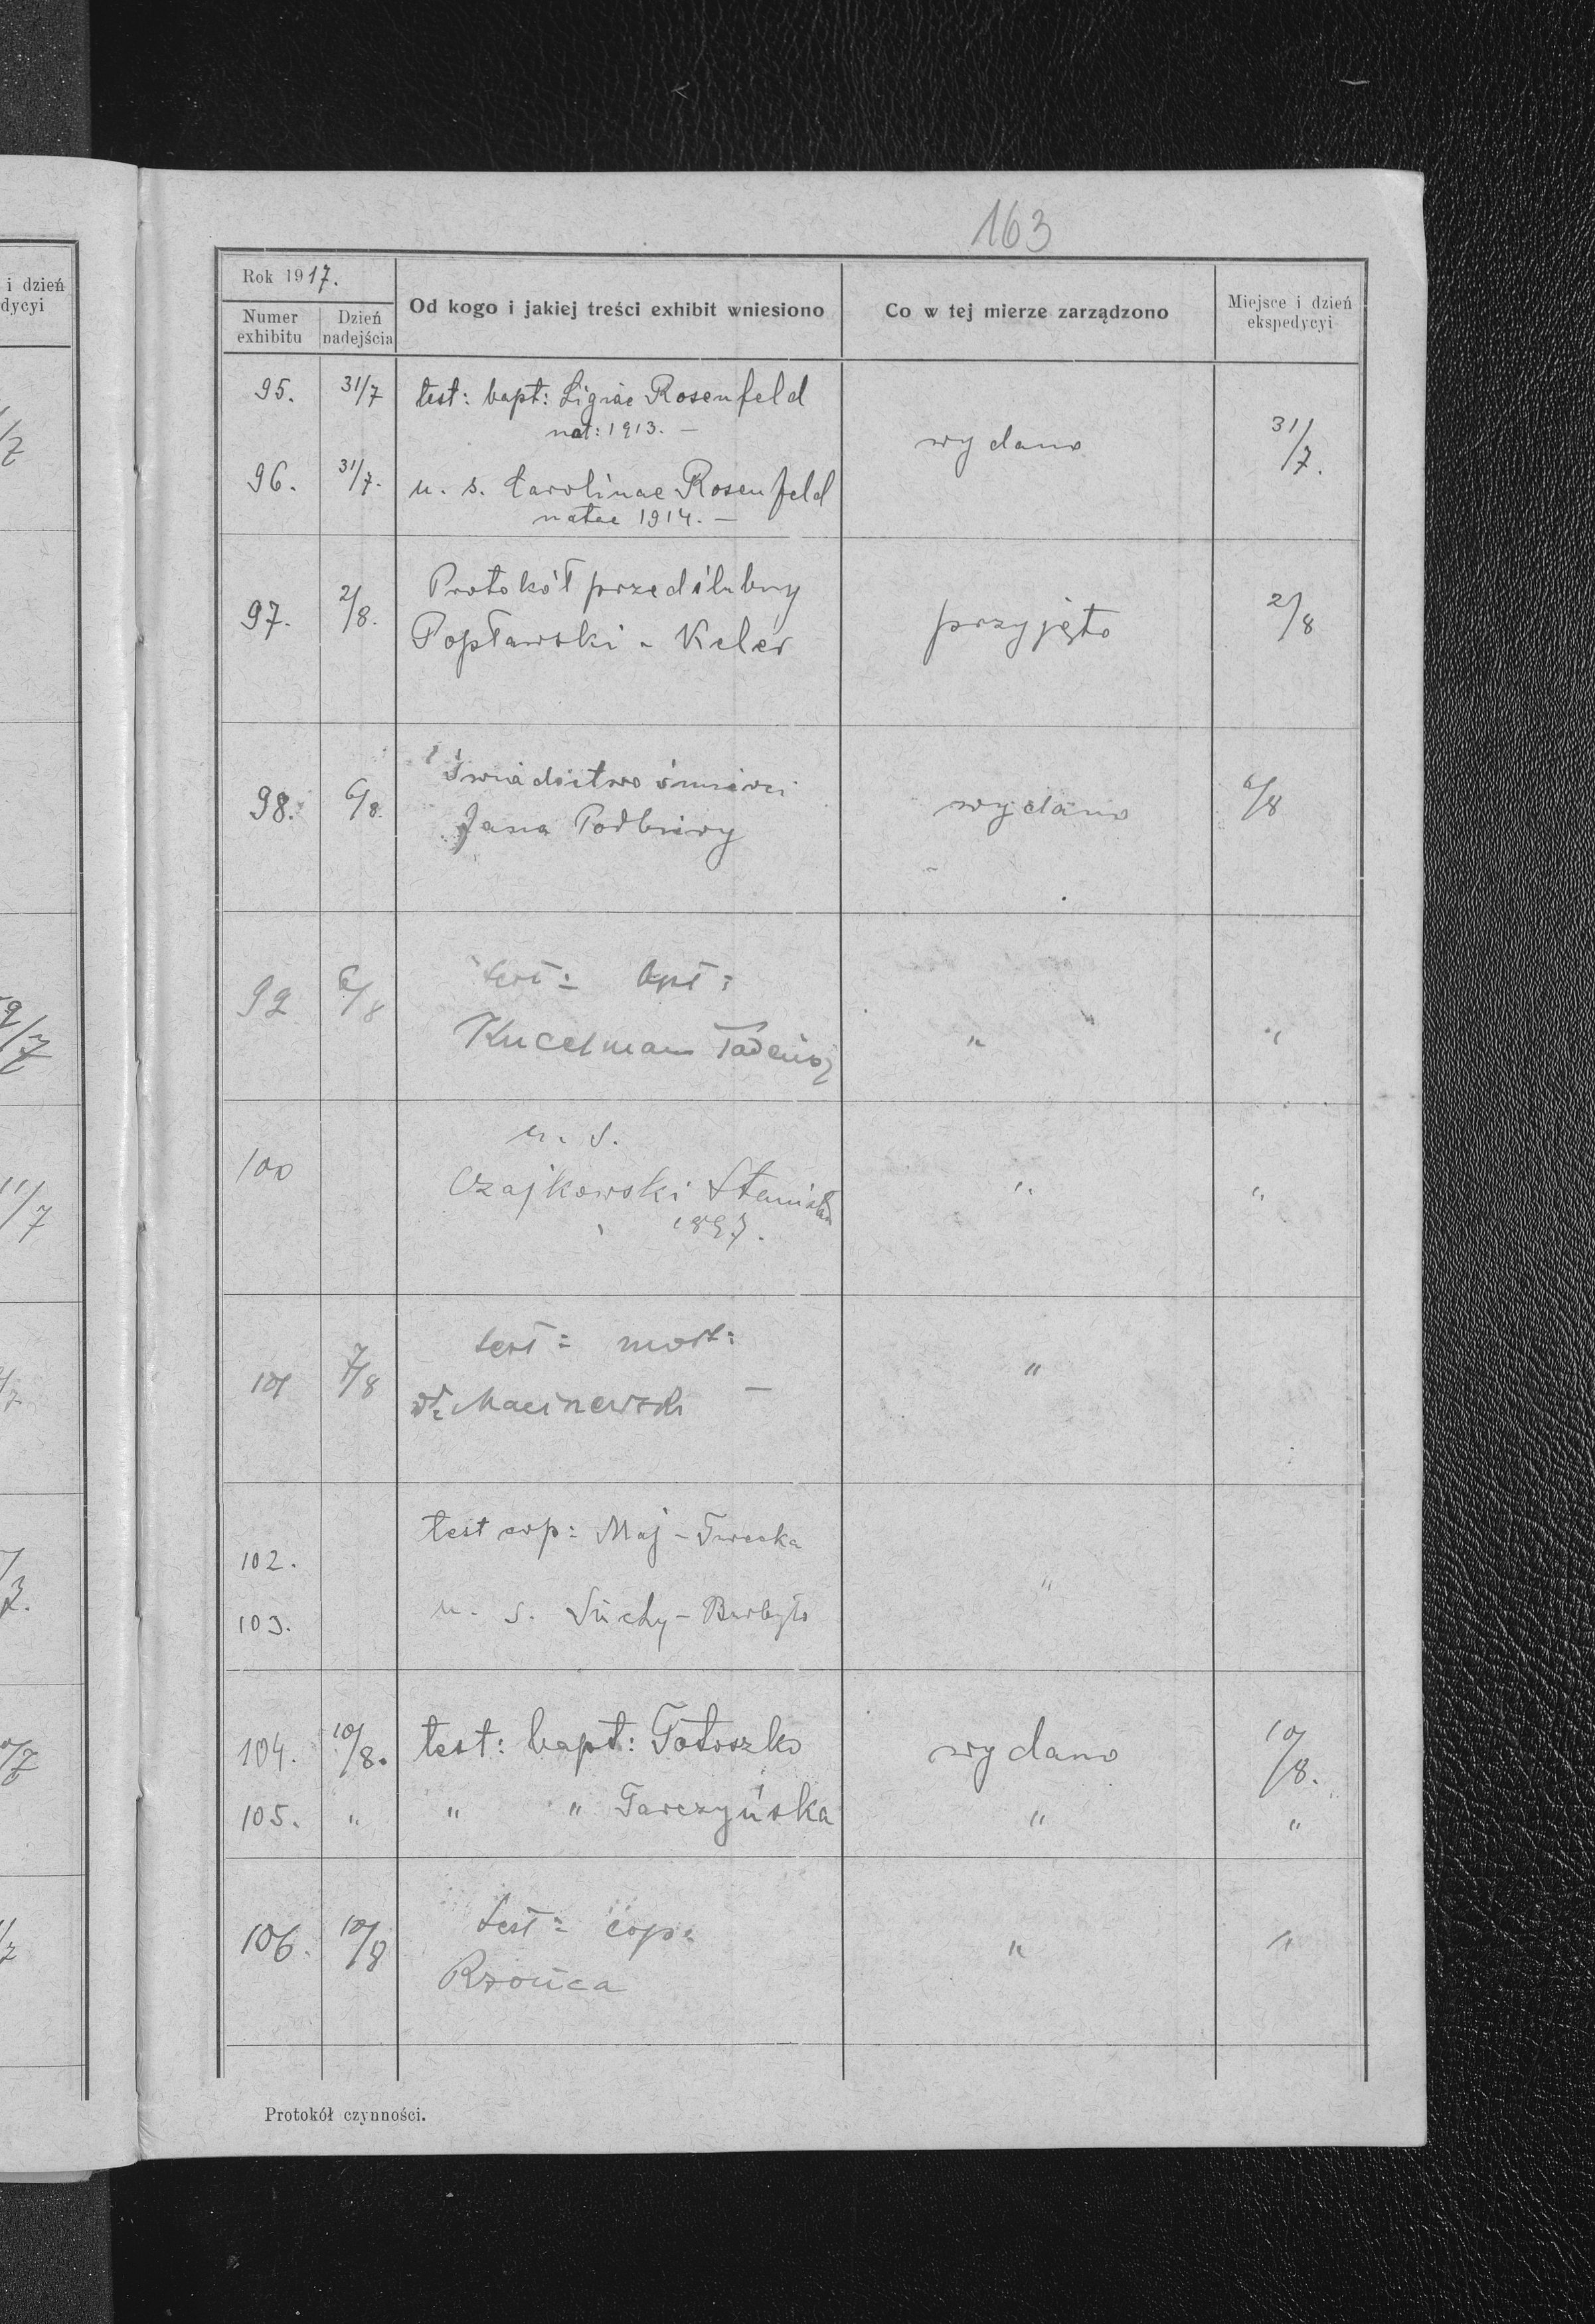 163
i dzień
dycyi
Rok 1917.
Numer exhibitu
Dzień nadejścia
Od kogo i jakiej treści exhibit wniesiono
Co w tej mierze zarządzono
Miejsce i dzień ekspedycyi
95. 31/7 test: bapt: Ligiae Rosenfeld
nat: 1913. –
wydano 31/7.
96. 31/7. u. s. Carolinae Rosenfeld
natae 1914. –
97. 2/8. Protokół przedślubny
Popławski - Keler przyjęto 2/8
98. 6/8. Świadectwo śmierci
Jana Podbiery wydano 6/8
99 6/8 test: bpt:
Kucelman Tadeusz " "
100 u. s.
Czajkowski Stanisław " "
1897.
101 7/8 test: mort: "
Macinewski –
102. test cop: Maj - Turecka
"
103. u. s. Suchy - Burbyło
104. 10/8. test: bapt: Totoszko wydano 10/8.
105. " " " Tarczyńska " "
106. 10/8 test: cop: " "
Rzońca
Protokół czynności.